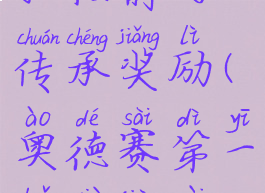 chuán chéng jiǎng lì
传承奖励(
ào dé sài dì yī
奥德赛第一